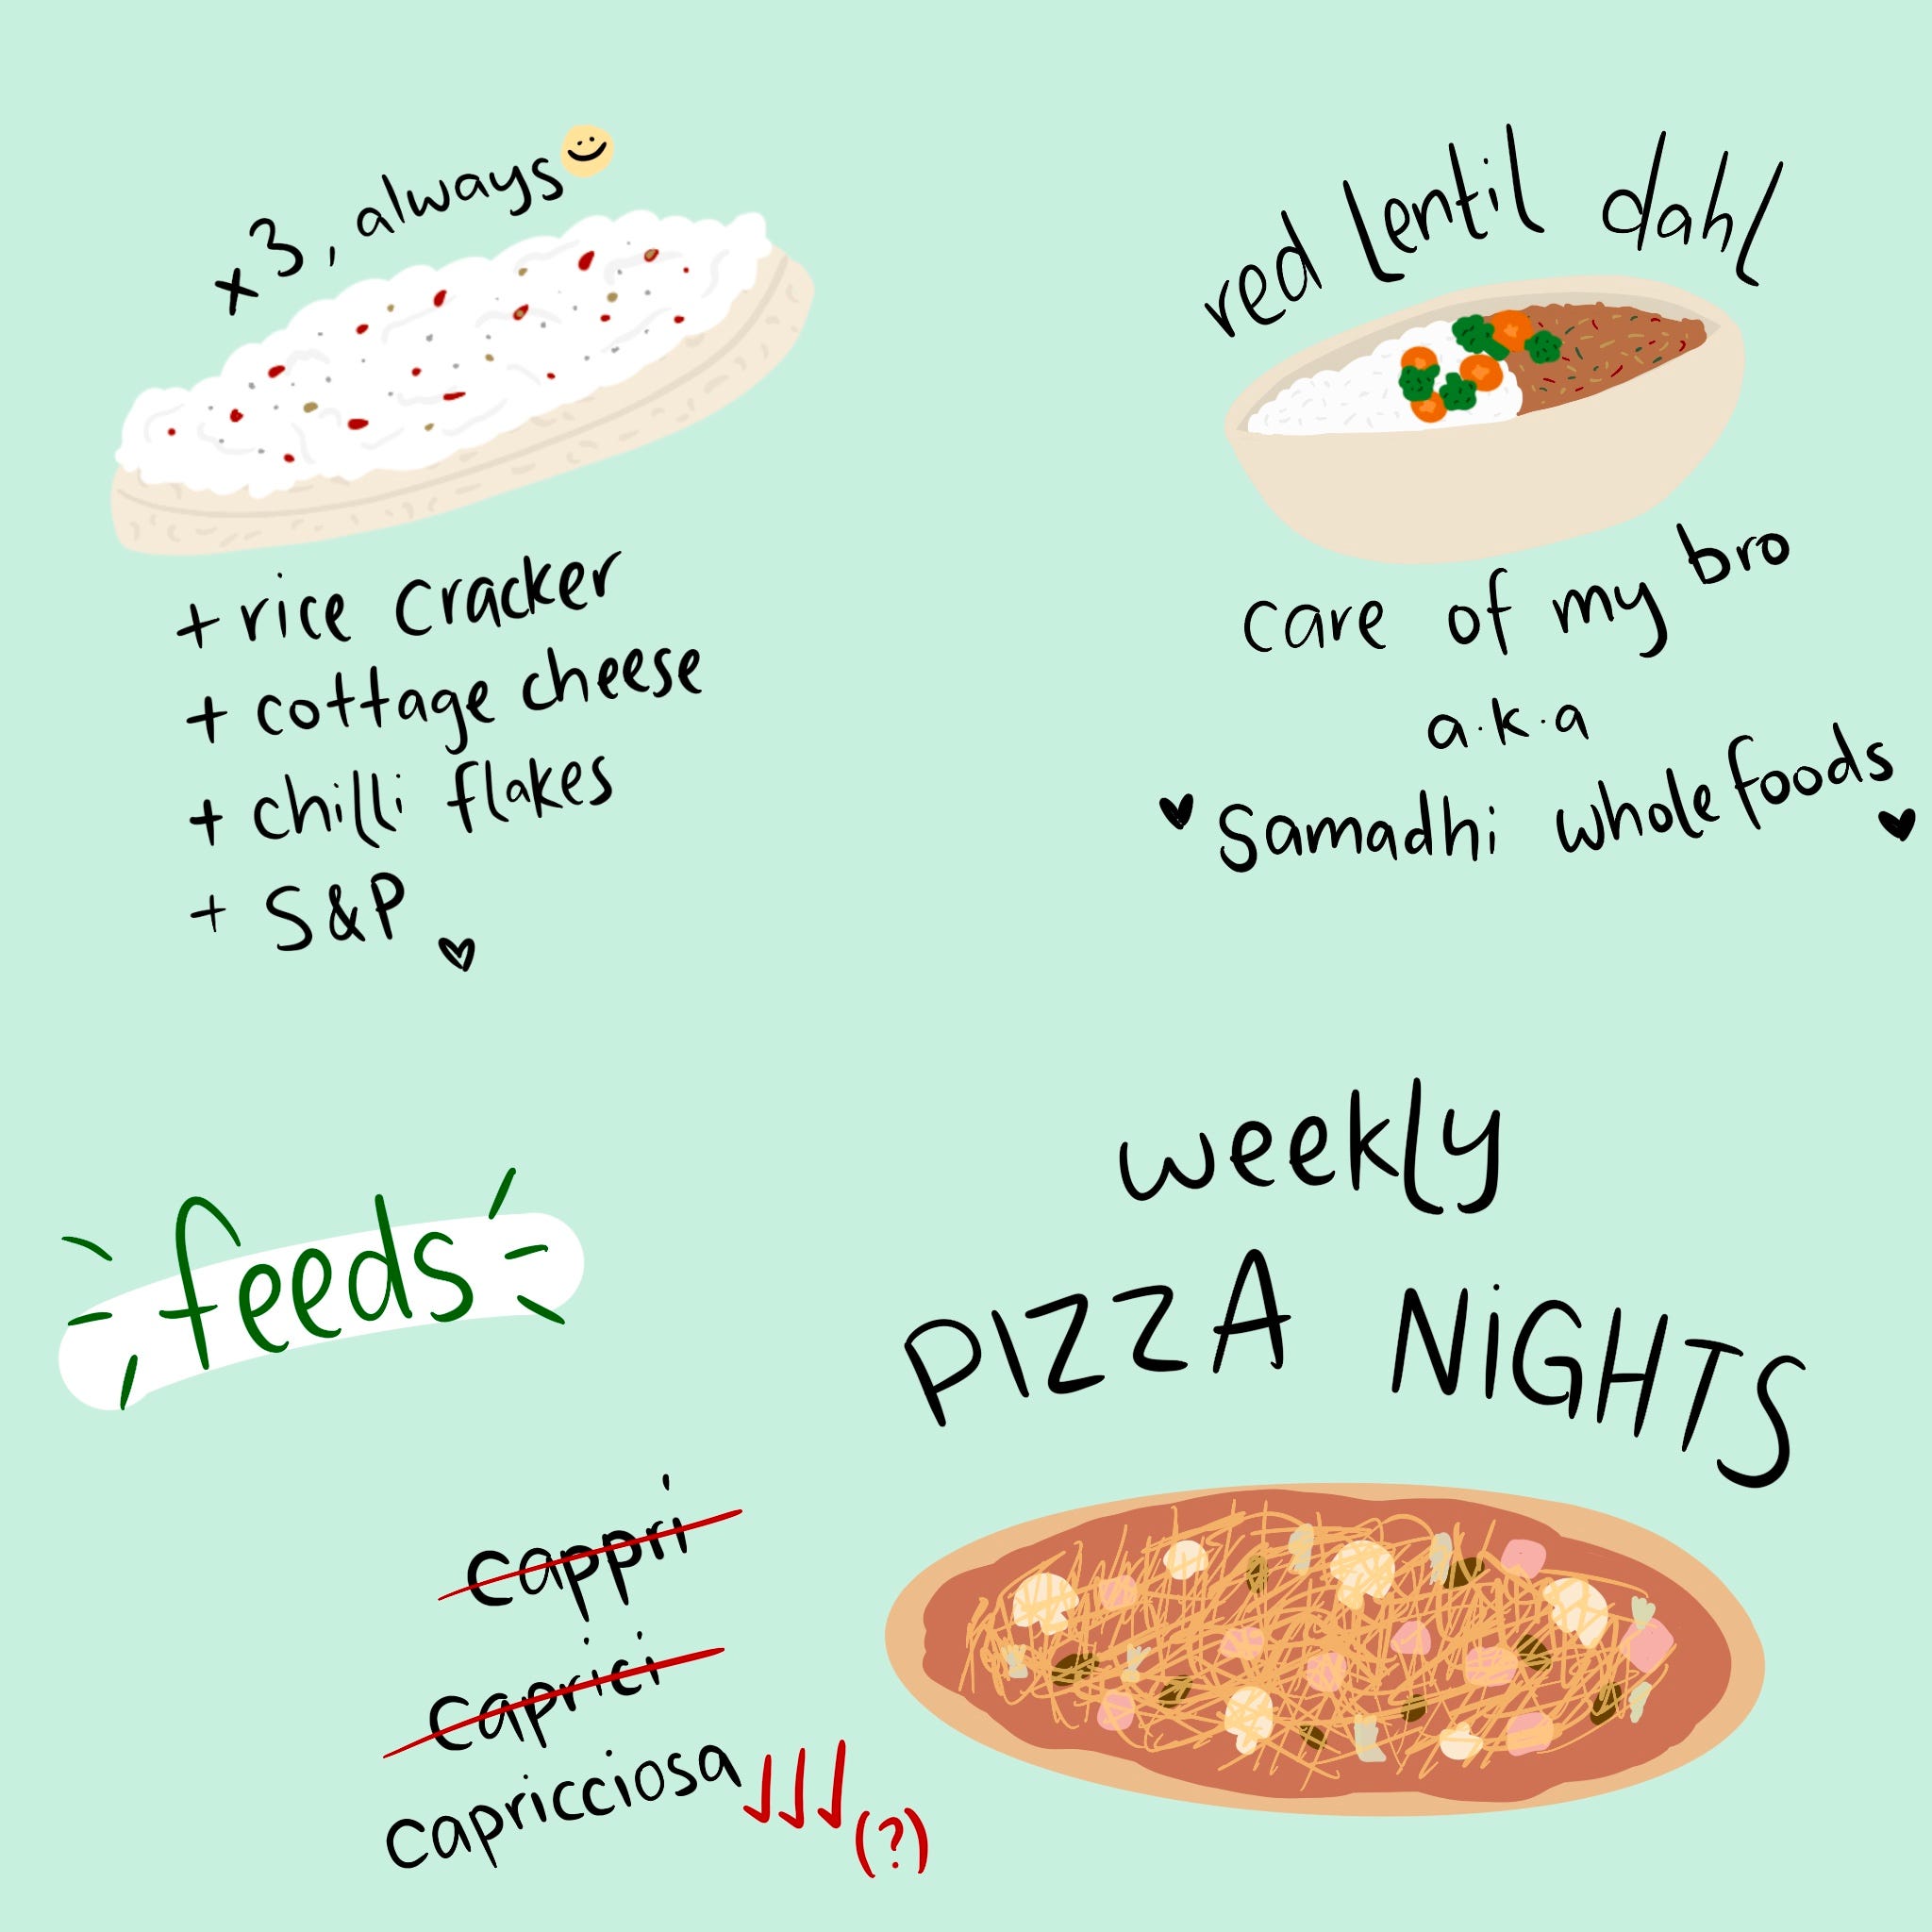 x3, always
+ rice cracker
+ cottage cheese
+ chilli flakes
+ S&P
red lentil dahl
care of my bro
a.k.a
Samadhi wholefoods
feeds
weekly
PIZZA NiGHTS
cappri
caprici
capricciosa
(?)